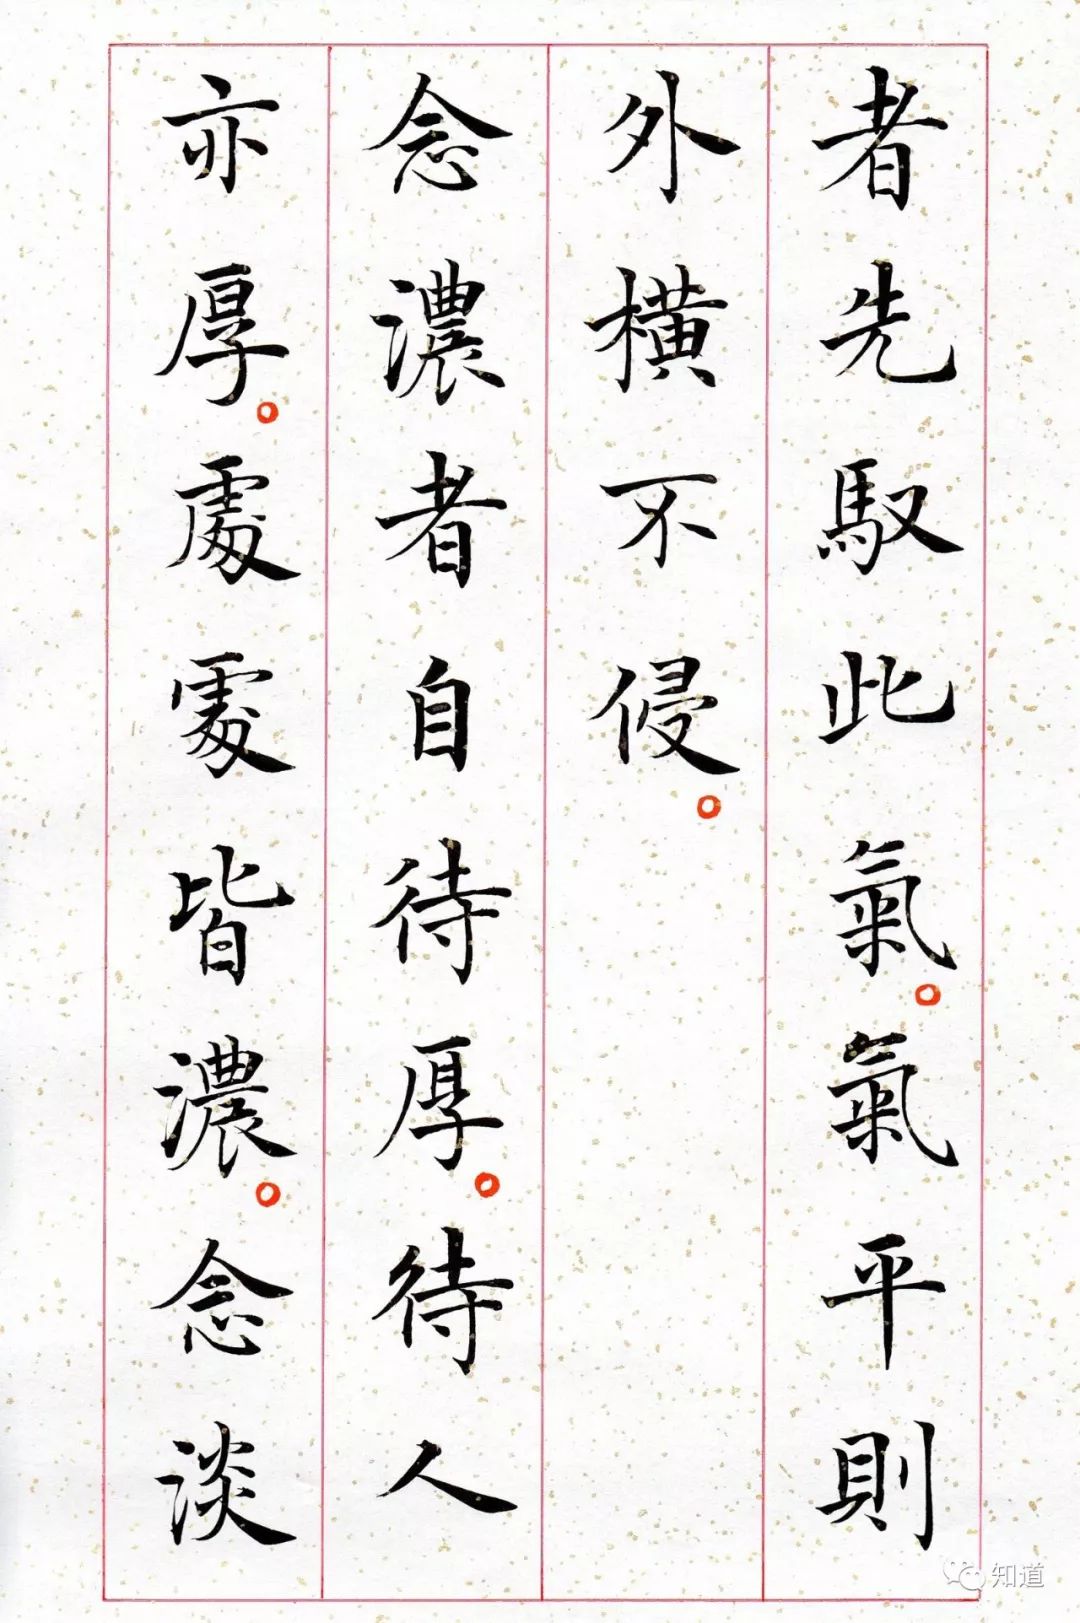 者先馭此氣。氣平則
外橫不侵。
念濃者自待厚。待人
亦厚。處處皆濃。念談
知道